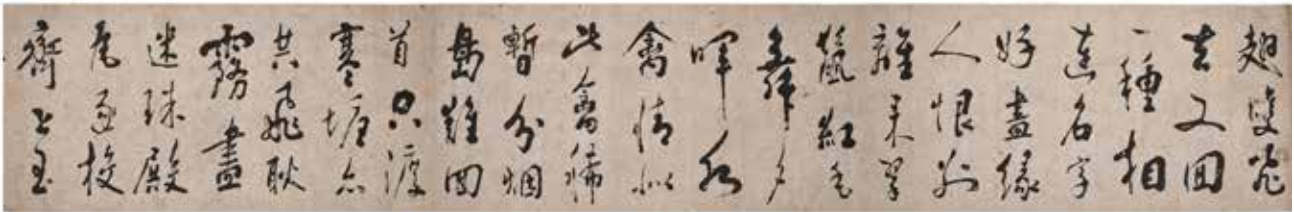 翅雙飛
去又回
一種相
連名字
好盡緣
人恨別
離来翠
鬣紅毛
舞夕
暉水
禽情似
此禽稀
暫分烟
島雖回
首只渡
寒塘亦
共飛耿
霧盡
迷珠殿
瓦逐梭
齊上玉